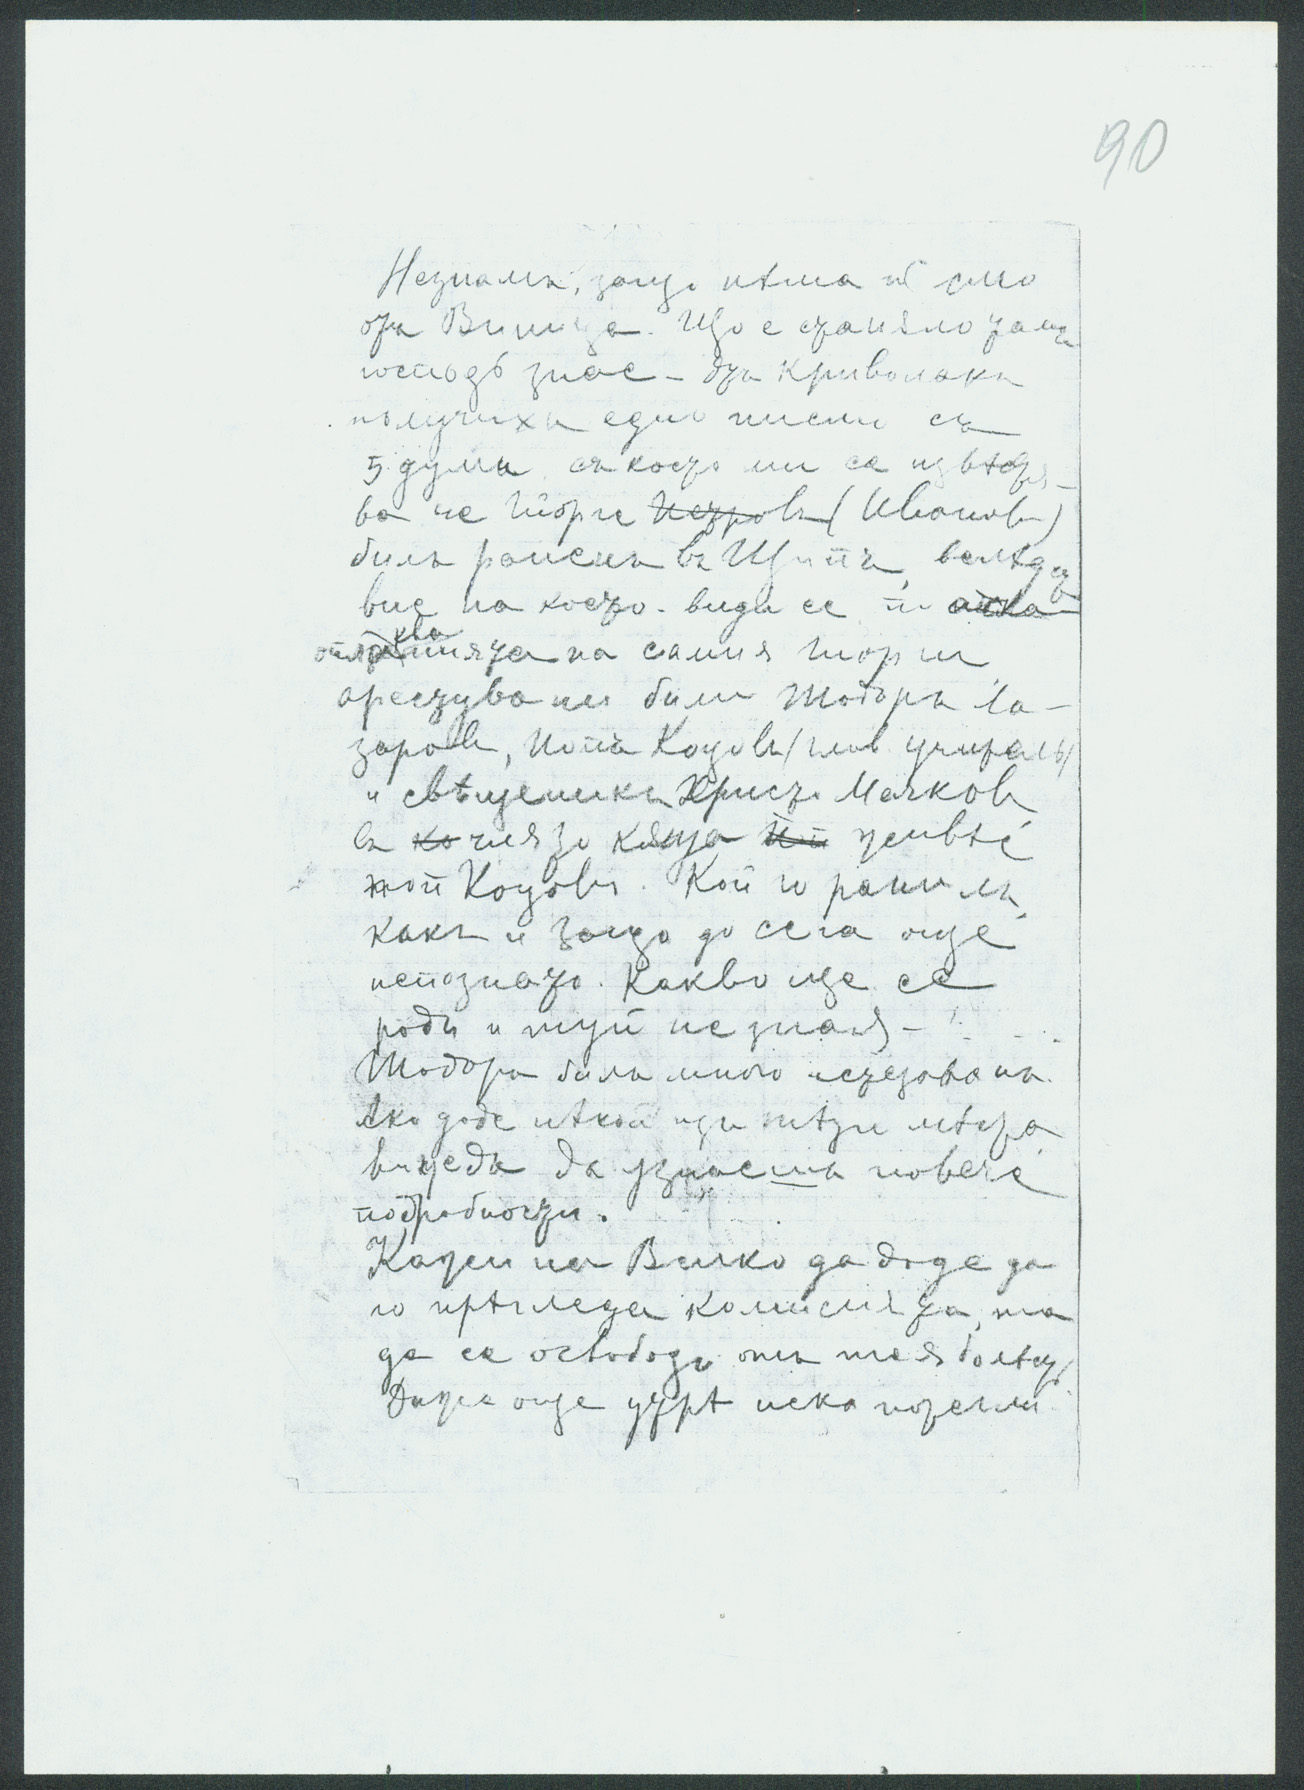 90
Незнамъ, защо нѣма писмо
отъ Виница. Що е станяло тамъ
господь знае – отъ Криволакъ
получихъ едно писмо съ
5 думи съ което ми се извѣстя-
ва че Гюрге Петровъ (Ивановъ)
билъ раненъ въ Щипъ, вслѣдст
вие на което види се по
оплакванията на самия Гюрги
арестувани били Тодоръ Ла-
заровъ, Попъ Коцовъ (глав. учителъ)
и свѣщеникъ Христо Мачковъ
въ чиято кяща живѣе
той Коцовъ. Кой го ранилъ,
какъ и защо до сега още
непознато. Какво ще се
роди и туй не зная –
Тодоръ билъ много изтезованъ.
Ако доде нѣкой изъ тѣзи мѣста
вънредъ да узнаешъ повече
подробности.
Кажи на Велко да доде да
го прѣгледа комисията, та
да се освободи отъ тая болѣсть
Даже още утрѣ нека потегли